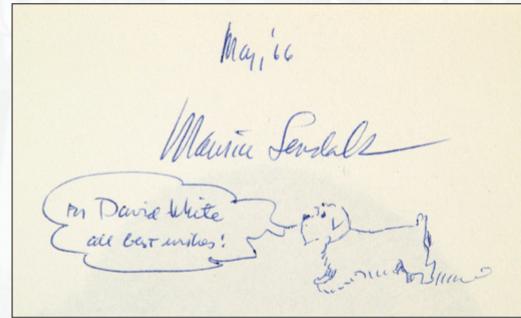 May, '66
Maurice Sendak
for David White
all best wishes!